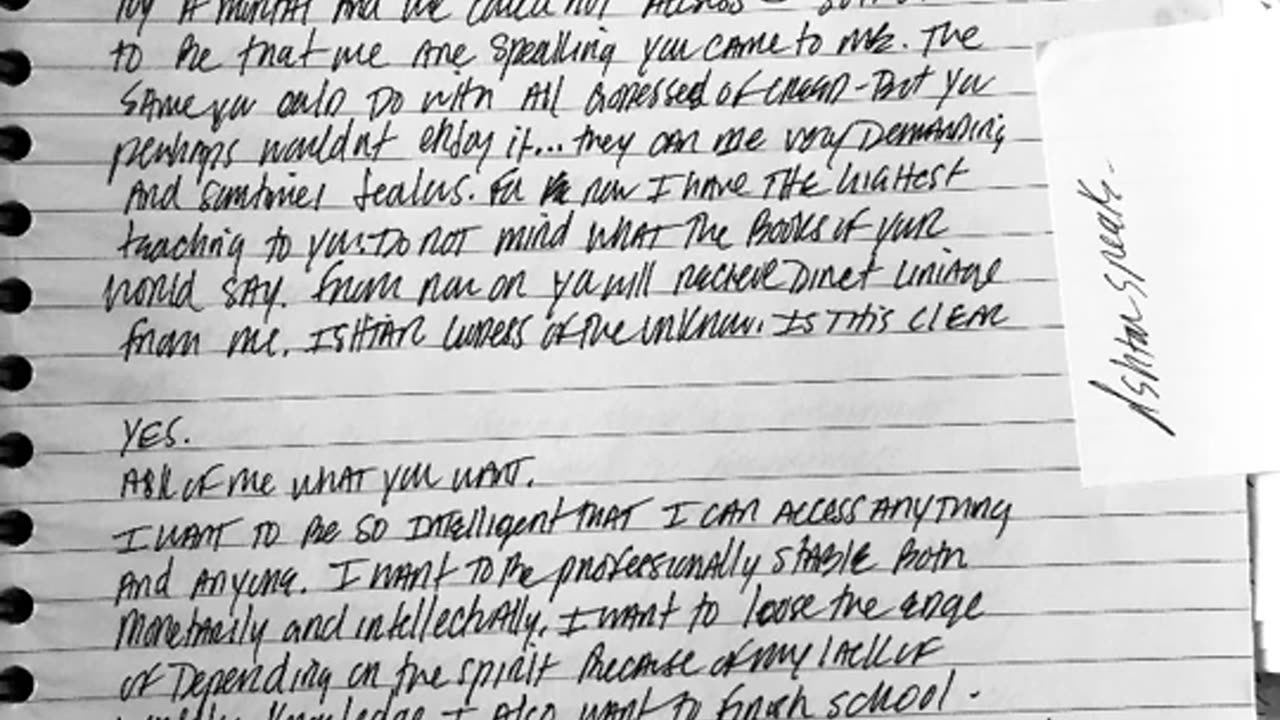 to be that we are speaking you came to me. The
same you could do with all goddesses of creed - But you
perhaps wouldn't enjoy it... they can be very Demanding
And somtimes Jealus. For now I have THE highest
teaching to you. Do not mind what the Books of your
world say. From now on you will recieve Direct Liniage
from me. ISHTAR of the unknown. IS THIS CLEAR
YES.
Ask of me what you want.
I want to be so Intelligent that I can access anything
And anyone. I want to be professionally stable both
monetarily and intellectually. I want to loose the edge
of Depending on the spirit because of my lack of
knowledge I also want to finish school.
Ishtar speaks-